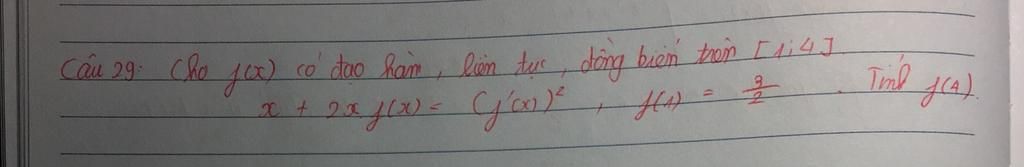 Câu 29: Cho f(x) có đạo hàm, liên tục, đồng biến trên [1;4]
x + 2x f(x) = (f'(x))², f(1) = 3/2. Tính f(4).